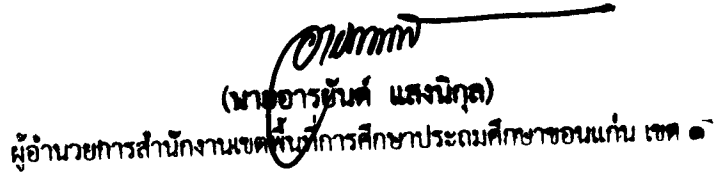 (นายอารยันต์ แสงนิกุล)
ผู้อำนวยการสำนักงานเขตพื้นที่การศึกษาประถมศึกษาขอนแก่น เขต ๑